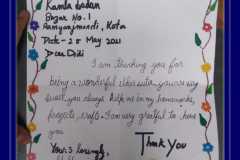 Kamla Sadan
Bazar No.1
Ramganjmandi, Kota
Date - 28 May 2021
Dear Didi
I am thanking you for
being a wonderful elder sister, you are very
sweet, you always help me in my homeworks,
projects, crafts. I am very grateful to have
you.
Thank You
Your's lovingly,